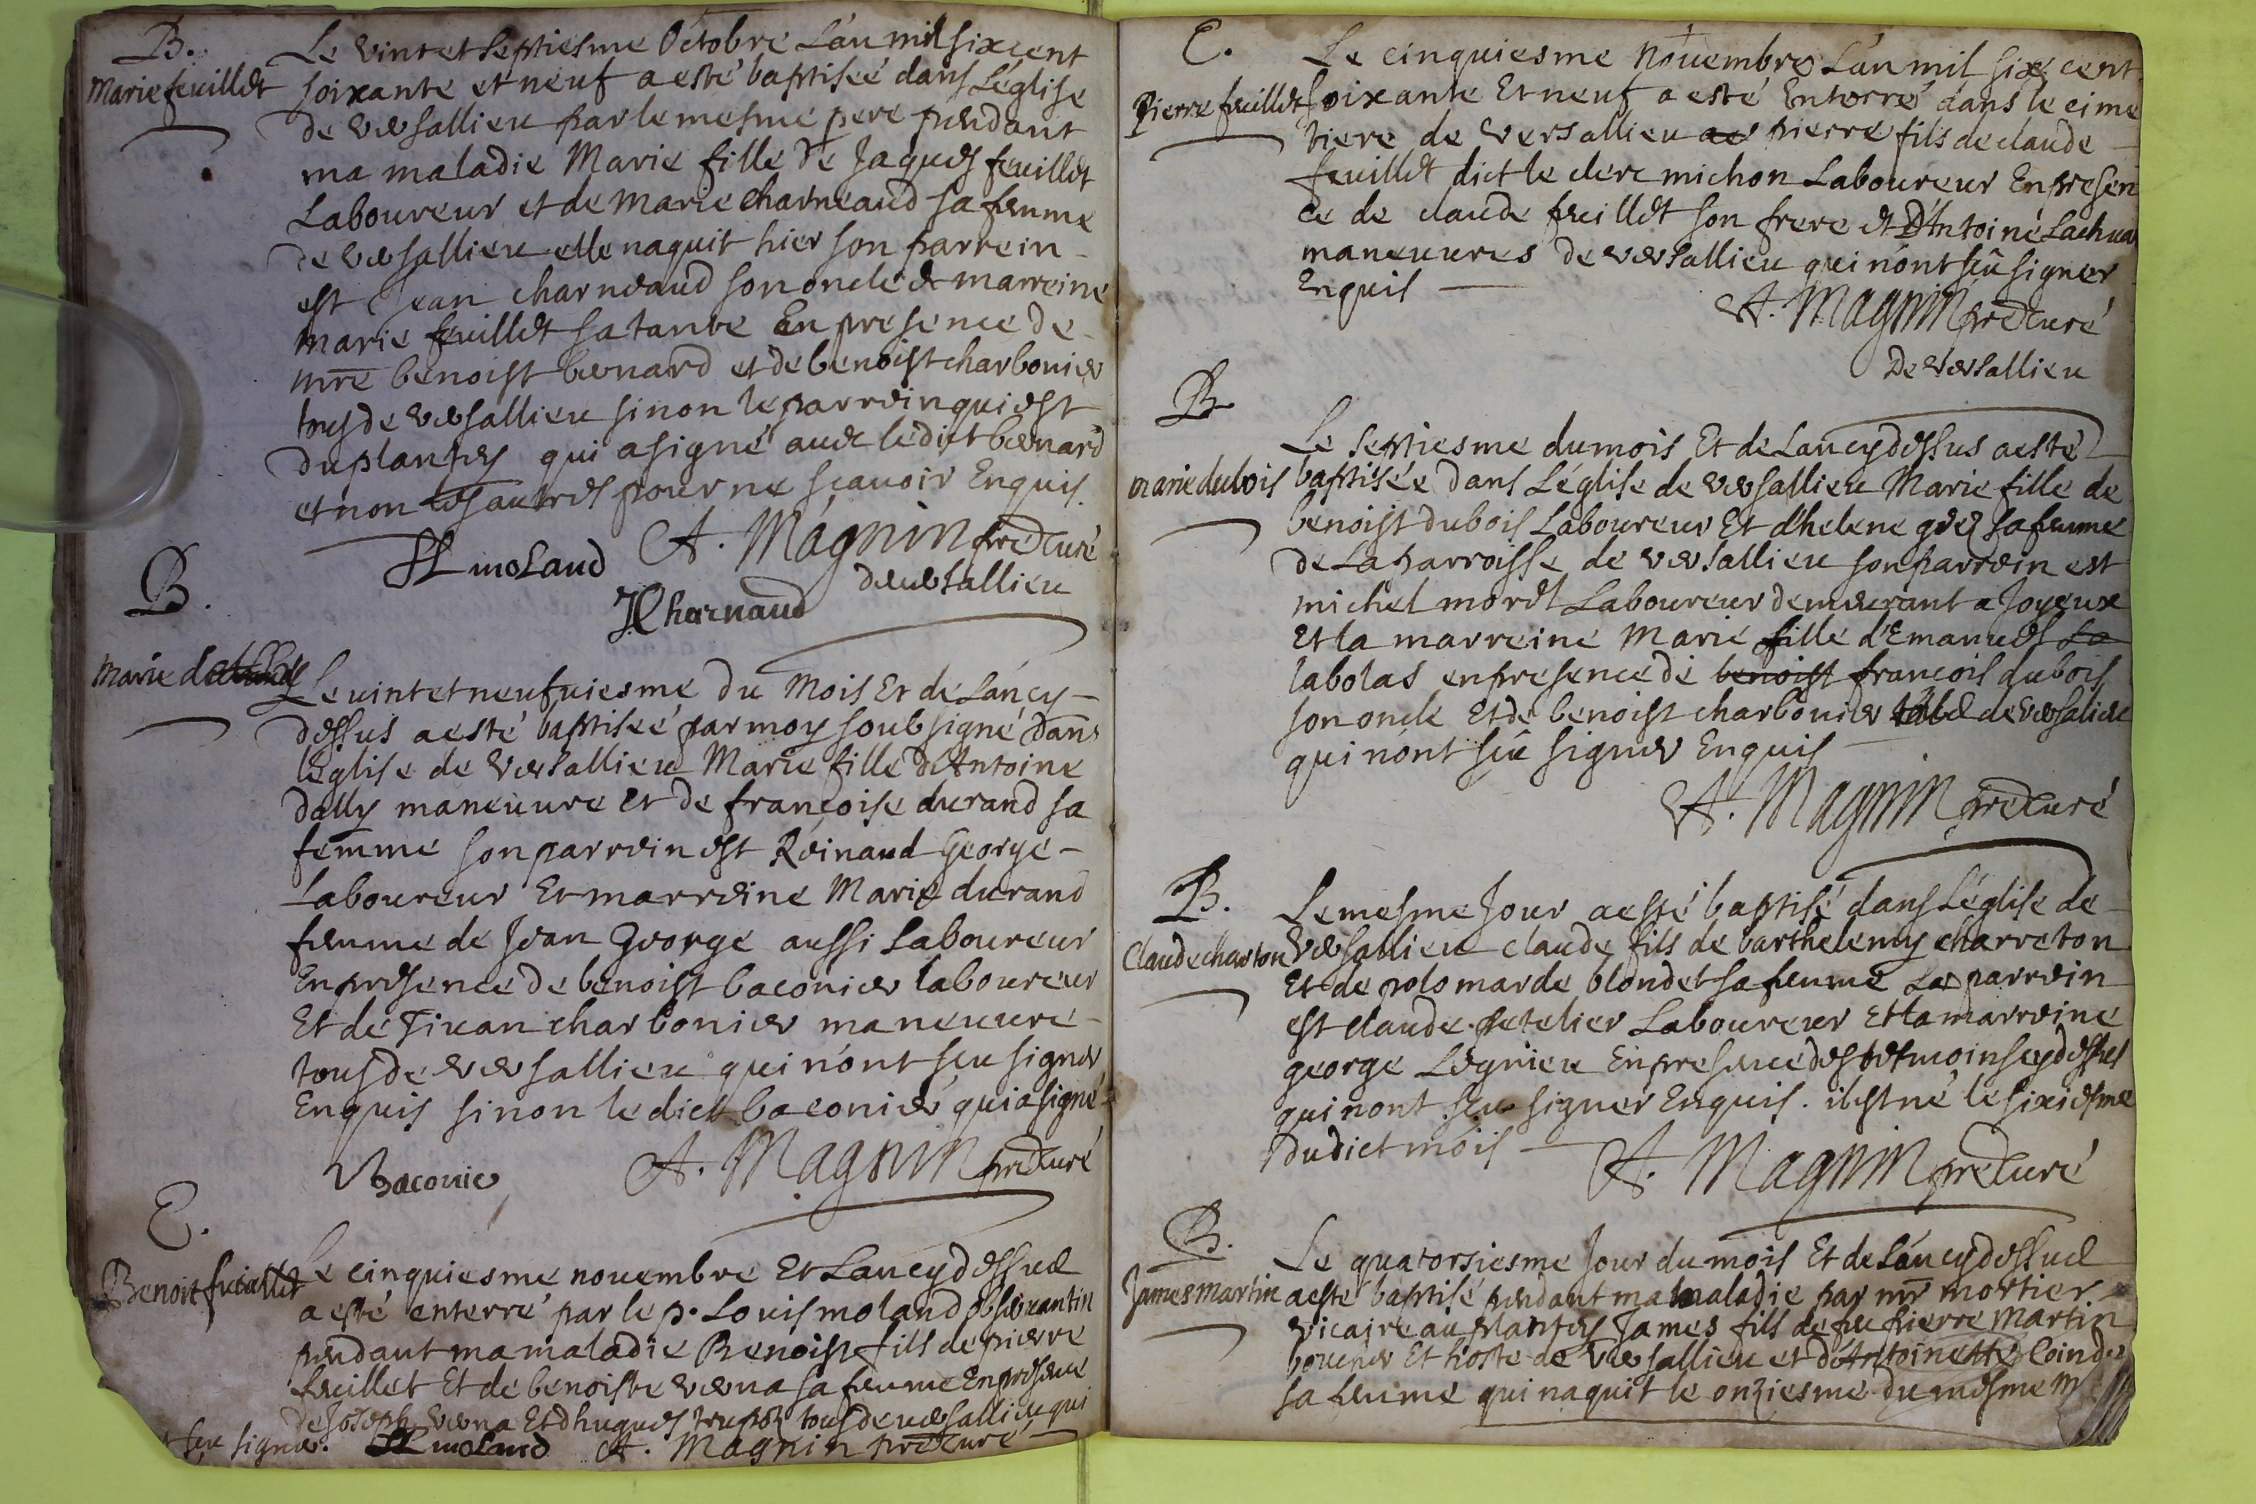 B.
Marie feuillet
Le vint et septiesme Octobre L'an mil six cent
soixante et neuf a esté baptiseé dans L'église
de versallieu par le mesme pere pendant
ma maladie Marie fille de Jaques feuillet
Laboureur et de Marie charneaud sa femme
de versallieu elle naquit hier son parrein
est Jean charneaud son oncle et marreine
marie feuillet sa tante En presence de
mre benoist bernard et de benoist charbonier
tous de versallieu sinon le parrein qui est
du plantey qui a signé avec le dict bernard
et non les autres pour ne scavoir Enquis.
A. Magnin pre curé
de versallieu
L moland
J Charnaud
B.
Marie
Le vint et neufviesme du Mois Et de L'ancy
dessus a esté baptiseé par moy soubsigné Dans
l'église de versallieu Marie fille d'Antoine
Dally maneuvre et de françoise durand sa
femme son parrein est Reinaud George
Laboureur Et marreine Marie durand
femme de Jean George aussi Laboureur
En presence de benoist baconier laboureur
Et de Tivan charbonier maneuvre
tous de versallieu qui n'ont sceu signer
Enquis sinon le dict baconier qui a signé
Baconier
A. Magnin pre curé
E.
Benoit feuillet
Le cinquiesme novembre Et L'ancydessus
a esté enterré par le p. Louis moland observantin
pendant ma maladie Benoist fils de pierre
feuillet Et de benoiste verna sa femme En presence
de Joseph verna Et d'hugues tous de versallieu qui
sceu signer. L moland A. Magnin pre curé
E.
Pierre feuillet
Le cinquiesme Novembre L'an mil six cent
soixante Et neuf a esté Enterré dans le cime
tiere de versallieu pierre fils de claude
feuillet dict le clerc michon Laboureur En presen
ce de claude feuillet son frere et D'Antoine Lachua
maneuvres de versallieu qui n'ont sçû signer
Enquis
A. Magnin pre curé
De versallieu
B.
marie dubois
Le septiesme du mois Et de L'ancydessus a esté
baptisée Dans L'église de versallieu Marie fille de
benoist dubois Laboureur Et d'helene sa femme
de La parroisse de versallieu son parrein est
michel morel Laboureur demeurant a Joyeux
Et la marreine Marie fille d'Emanuel La
labolas en presence de benoist francois dubois
son oncle Et de benoist charbonier de versalieu
qui n'ont sçû signer Enquis
A. Magnin pre curé
B.
Claude charton
Le mesme Jour a esté baptisé dans L'église de
versallieu claude fils de barthelemy charreton
Et de polomarde blondet sa femme Le parrein
est claude petelier Laboureur Et la marreine
george Legnieu En presence des tesmoins cydessus
qui n'ont sceu signer Enquis. il est né le sixiesme
Du dict mois
A. Magnin pre curé
B.
James martin
Le quatorsiesme Jour du mois Et de L'ancydessus
a esté baptisé pendant ma maladie par mr mortier
vicaire au plantey James fils de feu pierre Martin
boucher Et hoste de versallieu et d'Antoinette Coindr
sa femme qui naquit le onziesme du mesme M